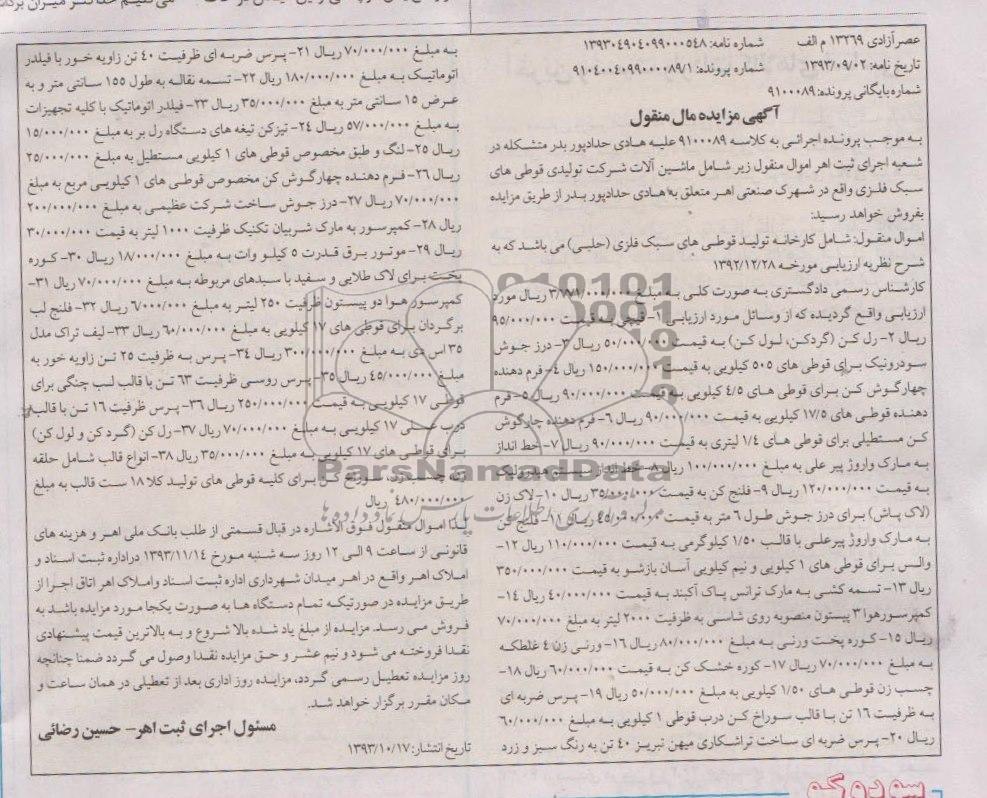 عصرآزادی ۱۳۲۶۹ م الف شماره نامه: ۱۳۹۳۰۴۹۰۴۰۹۹۰۰۰۵۴۸
تاریخ نامه: ۱۳۹۳/۰۹/۰۲ شماره پرونده: ۹۱۰۴۰۰۴۰۹۹۰۰۰۰۸۹/۱
شماره بایگانی پرونده: ۹۱۰۰۰۸۹
آگهی مزایده مال منقول
به موجب پرونده اجرائی به کلاسه ۹۱۰۰۰۸۹ علیه هادی حدادپور بدر متشکله در
شعبه اجرای ثبت اهر اموال منقول زیر شامل ماشین آلات شرکت تولیدی قوطی های
سبک فلزی واقع در شهرک صنعتی اهر متعلق به هادی حدادپور بدر از طریق مزایده
بفروش خواهد رسید:
اموال منقول: شامل کارخانه تولید قوطی های سبک فلزی (حلبی) می باشد که به
شرح نظریه ارزیابی مورخه ۱۳۹۲/۱۲/۲۸
کارشناس رسمی دادگستری به صورت کلی به مبلغ ریال مورد
ارزیابی واقع گردیده که از وسائل مورد ارزیابی ۱- قیچی به قیمت ۹۵/۰۰۰/۰۰۰
ریال ۲- رل کن (گردکن، لول کن) به قیمت ۵۰/۰۰۰/۰۰۰ ریال ۳- درز جوش
سودرونیک برای قوطی های ۵۰۵ کیلویی به قیمت ۱۵۰/۰۰۰/۰۰۰ ریال ۴- فرم دهنده
چهارگوش کن برای قوطی های ۴/۵ کیلویی به قیمت ۹۰/۰۰۰/۰۰۰ ریال ۵- فرم
دهنده قوطی های ۱۷/۵ کیلویی به قیمت ۹۰/۰۰۰/۰۰۰ ریال ۶- فرم دهنده چارگوش
کن مستطیلی برای قوطی های ۱/۴ لیتری به قیمت ۹۰/۰۰۰/۰۰۰ ریال ۷- خط انداز
به مارک واروژ پیر علی به مبلغ ۱۰۰/۰۰۰/۰۰۰ ریال ۸- خط انداز هیدرولیک
به قیمت ۱۲۰/۰۰۰/۰۰۰ ریال ۹- فلنج کن به قیمت ۳۵/۰۰۰/۰۰۰ ریال ۱۰- لاک زن
(لاک پاش) برای درز جوش طول ۶ متر به قیمت ریال ۱۱- فلنج کن
به مارک واروژ پیرعلی با قالب ۱/۵۰ کیلوگرمی به قیمت ۱۱۰/۰۰۰/۰۰۰ ریال ۱۲-
والس برای قوطی های ۱ کیلویی و نیم کیلویی آسان بازشو به قیمت ۳۵۰/۰۰۰/۰۰۰
ریال ۱۳- تسمه کشی به مارک ترانس پاک آکبند به قیمت ۴۰/۰۰۰/۰۰۰ ریال ۱۴-
کمپرسورهوا ۳ پیستون منصوبه روی شاسی به ظرفیت ۲۰۰۰ لیتر به مبلغ ۷۰/۰۰۰/۰۰۰
ریال ۱۵- کوره پخت ورنی به مبلغ ۸۰/۰۰۰/۰۰۰ ریال ۱۶- ورنی زن ۴ غلطکه
به مبلغ ۷۰/۰۰۰/۰۰۰ ریال ۱۷- کوره خشک کن به قیمت ۶۰/۰۰۰/۰۰۰ ریال ۱۸-
چسب زن قوطی های ۱/۵۰ کیلویی به مبلغ ۵۰/۰۰۰/۰۰۰ ریال ۱۹- پرس ضربه ای
به ظرفیت ۱۶ تن با قالب سوراخ کن درب قوطی ۱ کیلویی به مبلغ ۶۰/۰۰۰/۰۰۰
ریال ۲۰- پرس ضربه ای ساخت تراشکاری میهن تبریز ۴۰ تن به رنگ سبز و زرد
به مبلغ ۷۰/۰۰۰/۰۰۰ ریال ۲۱- پرس ضربه ای ظرفیت ۴۰ تن زاویه خور با فیلدر
اتوماتیک به مبلغ ۱۸۰/۰۰۰/۰۰۰ ریال ۲۲- تسمه نقاله به طول ۱۵۵ سانتی متر و به
عرض ۱۵ سانتی متر به مبلغ ۳۵/۰۰۰/۰۰۰ ریال ۲۳- فیلدر اتوماتیک با کلیه تجهیزات
به مبلغ ۵۷/۰۰۰/۰۰۰ ریال ۲۴- تیزکن تیغه های دستگاه رل بر به مبلغ ۱۵/۰۰۰/۰۰۰
ریال ۲۵- لنگ و طبق مخصوص قوطی های ۱ کیلویی مستطیل به مبلغ ۲۵/۰۰۰/۰۰۰
ریال ۲۶- فرم دهنده چهارگوش کن مخصوص قوطی های ۱ کیلویی مربع به مبلغ
۷۰/۰۰۰/۰۰۰ ریال ۲۷- درز جوش ساخت شرکت عظیمی به مبلغ ۲۰۰/۰۰۰/۰۰۰
ریال ۲۸- کمپرسور به مارک شریبان تکنیک ظرفیت ۱۰۰۰ لیتر به قیمت ۳۰/۰۰۰/۰۰۰
ریال ۲۹- موتور برق قدرت ۵ کیلو وات به مبلغ ۱۸/۰۰۰/۰۰۰ ریال ۳۰- کوره
پخت برای لاک طلایی و سفید با سبدهای مربوطه به مبلغ ۷۰/۰۰۰/۰۰۰ ریال ۳۱-
کمپرسور هوا دو پیستون ظرفیت ۲۵۰ لیتر به مبلغ ۶/۰۰۰/۰۰۰ ریال ۳۲- فلنج لب
برگردان برای قوطی های ۱۷ کیلویی به مبلغ ۶۰/۰۰۰/۰۰۰ ریال ۳۳- لیف تراک مدل
۳۵ اس دی به مبلغ ۳۰۰/۰۰۰/۰۰۰ ریال ۳۴- پرس به ظرفیت ۲۵ تن زاویه خور به
مبلغ ۴۵/۰۰۰/۰۰۰ ریال ۳۵- پرس روسی ظرفیت ۶۳ تن با قالب لب چنگی برای
قوطی ۱۷ کیلویی به قیمت ۲۵۰/۰۰۰/۰۰۰ ریال ۳۶- پرس ظرفیت ۱۶ تن با قالب
درب ۱۷ کیلویی به مبلغ ۷۰/۰۰۰/۰۰۰ ریال ۳۷- رل کن (گرد کن و لول کن)
برای قوطی های ۱۷ کیلویی به مبلغ ۳۵/۰۰۰/۰۰۰ ریال ۳۸- انواع قالب شامل حلقه
سوراخ کن برای کلیه قوطی های تولید کلا ۱۸ ست قالب به مبلغ
۴۸۰/۰۰۰/۰۰۰ ریال
لذا اموال منقول فوق الاشاره در قبال قسمتی از طلب بانک ملی اهر و هزینه های
قانونی از ساعت ۹ الی ۱۲ روز سه شنبه مورخ ۱۳۹۳/۱۱/۱۴ دراداره ثبت اسناد و
املاک اهر واقع در اهر میدان شهرداری اداره ثبت اسناد واملاک اهر اتاق اجرا از
طریق مزایده در صورتیکه تمام دستگاه ها به صورت یکجا مورد مزایده باشد به
فروش می رسد. مزایده از مبلغ یاد شده بالا شروع و به بالاترین قیمت پیشنهادی
نقدا فروخته می شود و نیم عشر و حق مزایده نقدا وصول می گردد ضمنا چنانچه
روز مزایده تعطیل رسمی گردد، مزایده روز اداری بعد از تعطیلی در همان ساعت و
مکان مقرر برگزار خواهد شد.
مسئول اجرای ثبت اهر- حسین رضائی
تاریخ انتشار: ۱۳۹۳/۱۰/۱۷
ParsNamadData